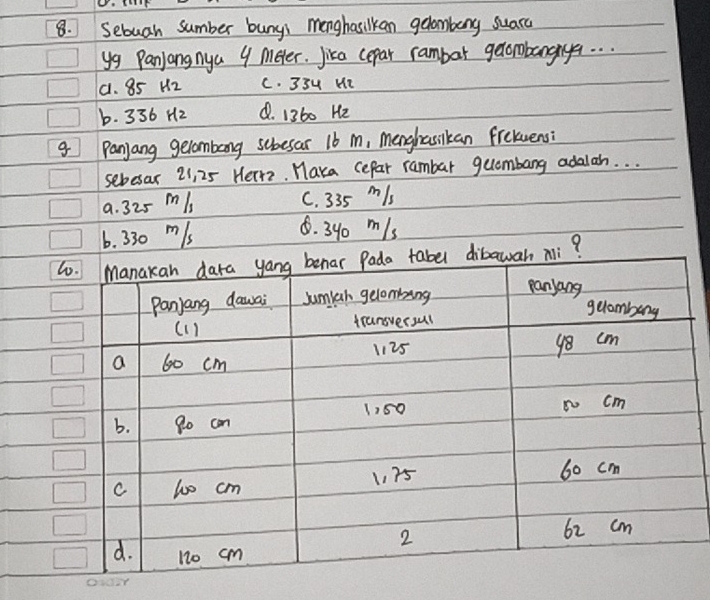 8. Sebuah sumber bunyi menghasilkan gelombang suara
yg panjangnya 4 meter. Jika cepat rambat gelombangnya...
a. 85 Hz c. 334 Hz
b. 336 Hz d. 1360 Hz
9 Panjang gelombang sebesar 16 m, menghasilkan frekuensi
sebesar 21,25 Hertz. Maka cepat rambat gelombang adalah...
a. 325 m/s c. 335 m/s
b. 330 m/s d. 340 m/s
10. Manakah data yang benar pada tabel dibawah ini?
Panjang dawai Jumlah gelombang Panjang
(l) transversal gelombang
a 60 cm 1,25 48 cm
b. 80 cm 1,50 50 cm
c 100 cm 1,75 60 cm
d. 120 cm 2 62 cm